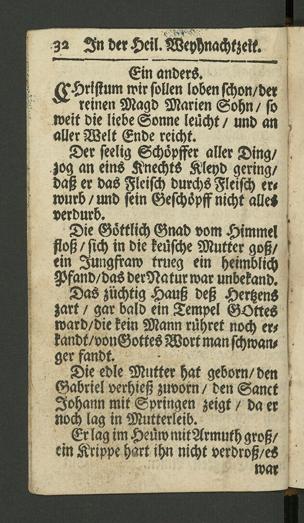 32 In der Heil. Weyhnachtzeit.
Ein anders.
CHristum wir sollen loben schon/der
reinen Magd Marien Sohn/ so
weit die liebe Sonne leücht/ und an
aller Welt Ende reicht.
Der seelig Schöpffer aller Ding/
zog an eins Knechts Kleyd gering/
daß er das Fleisch durchs Fleisch er-
wurb/ und sein Geschöpff nicht alles
verdurb.
Die Göttlich Gnad vom Himmel
floß/ sich in die keüsche Mutter goß/
ein Jungfraw trueg ein heimblich
Pfand/das der Natur war unbekand.
Das züchtig Hauß deß Hertzens
zart/ gar bald ein Tempel GOttes
ward/die kein Mann rühret noch er-
kandt/von Gottes Wort man schwan-
ger fandt.
Die edle Mutter hat geborn/den
Gabriel verhieß zuvorn/ den Sanct
Johann mit Springen zeigt/ da er
noch lag in Mutterleib.
Er lag im Heüw mit Armuth groß/
ein Krippe hart ihn nicht verdroß/es
war